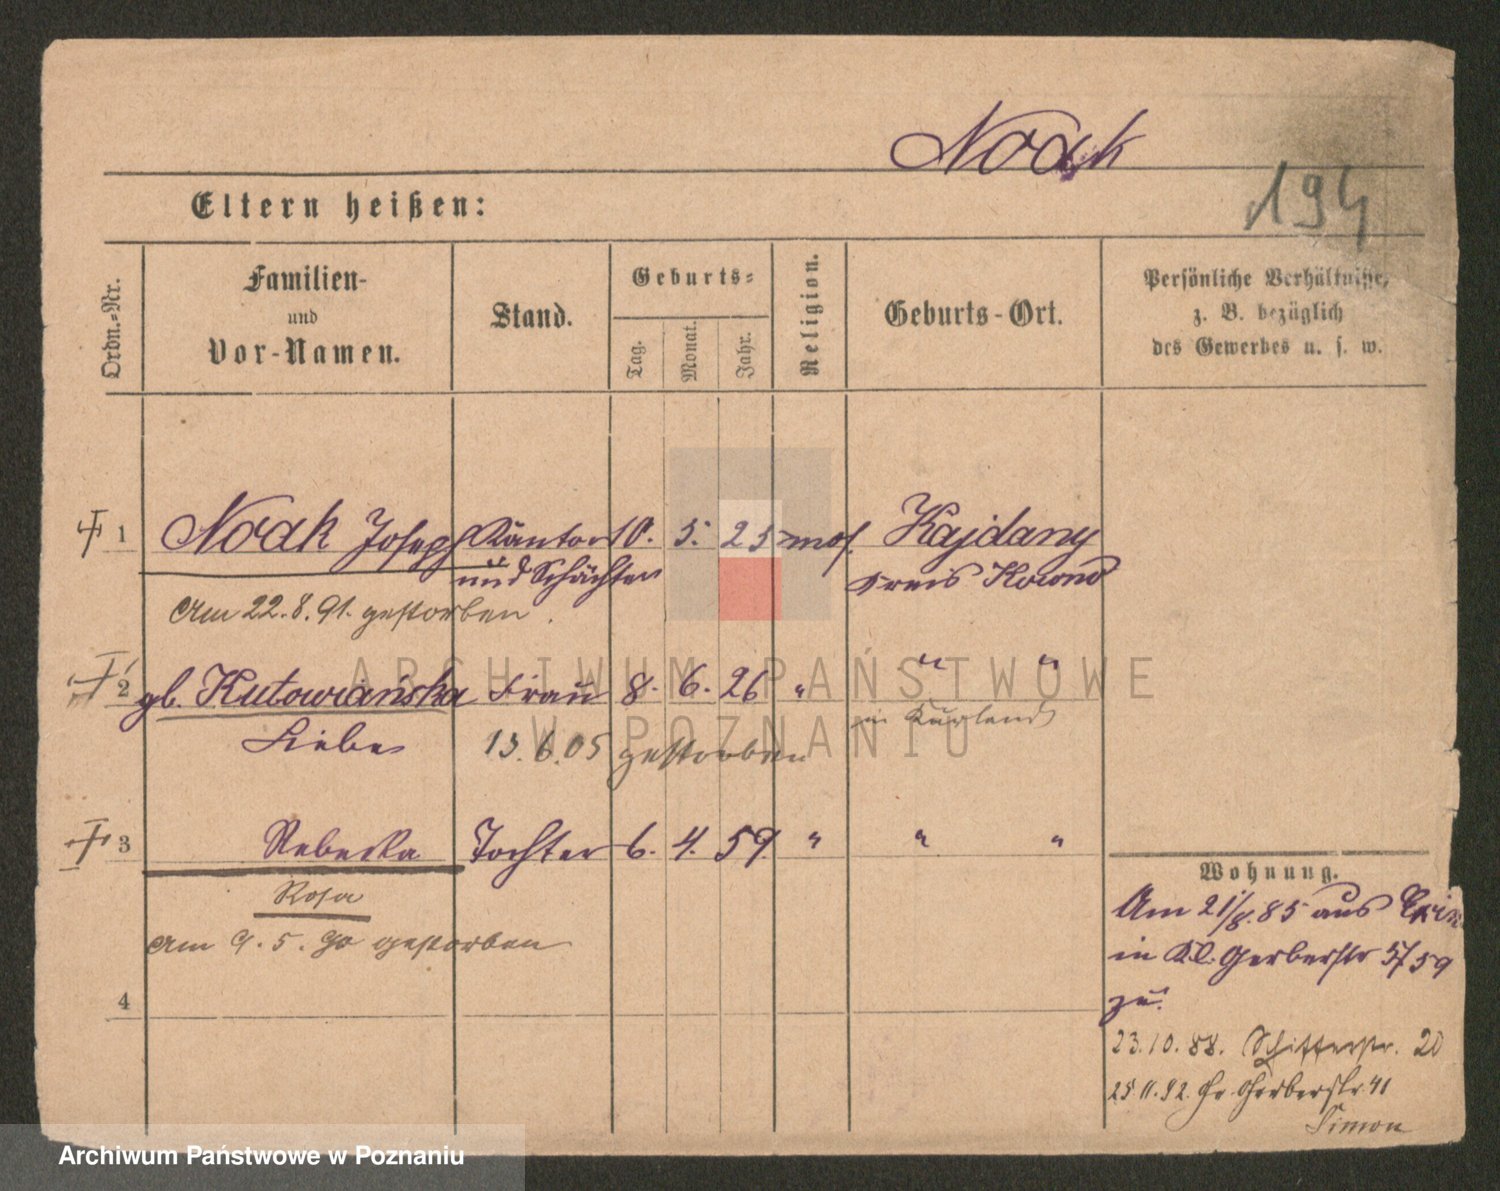 Noak
194
Eltern heißen:
Ordn.-Nr.
Familien-
und
Vor-Namen.
Stand.
Geburts-
Tag.
Monat.
Jahr.
Religion.
Geburts-Ort.
Persönliche Verhältnisse,
z. B. bezüglich
des Gewerbes u. s. w.
1 Noak Joseph Kantor 10. 5. 25 mos. Kajdany
und Schächter Kreis Kowno
Am 22.8.91. gestorben.
2 gb. Kutowianska Frau 8. 6. 26 " " "
in Kurland
Liebe 13.6.05 gestorben
3 Rebekka Tochter 6. 4. 59. " " "
Rosa
Am 9. 5. 90 gestorben
4
Wohnung.
Am 21/8.85 aus
in Kl. Gerberstr 5/59
zu.
23.10.88. Schifferstr. 20
25.11.92. Gr. Gerberstr. 41
Simon
ARCHIWUM PAŃSTWOWE
W POZNANIU
Archiwum Państwowe w Poznaniu